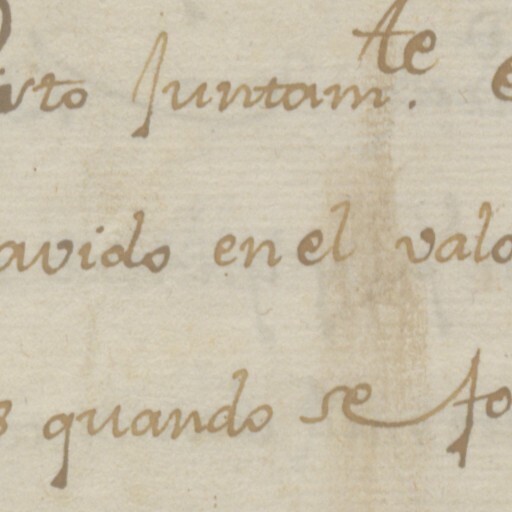 Juntam.te
avido en el valo
quando se fo